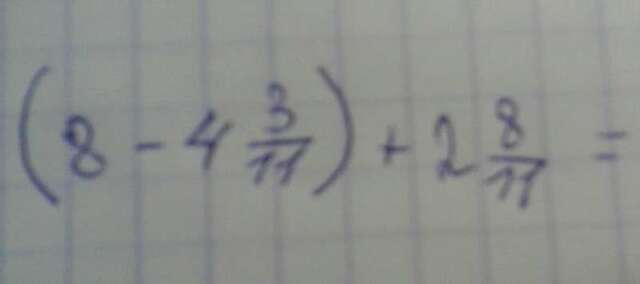 (8 - 4 3/11) + 2 8/11 =